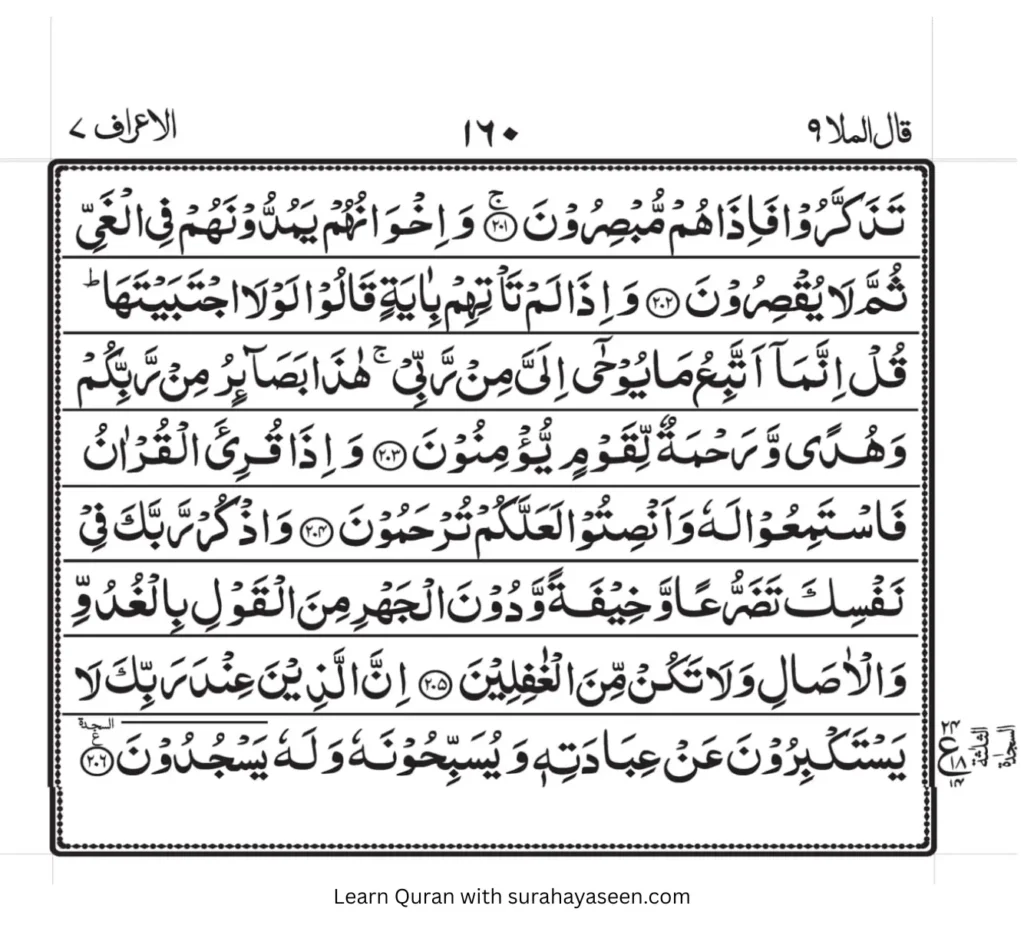 قال الملا ٩ ١٦٠ الاعراف ٧
تَذَكَّرُوْا فَاِذَا هُمْ مُّبْصِرُوْنَ ۚ﴿۲۰۱﴾ وَ اِخْوَانُهُمْ يَمُدُّوْنَهُمْ فِى الْغَىِّ
ثُمَّ لَا يُقْصِرُوْنَ ﴿۲۰۲﴾ وَ اِذَا لَمْ تَاْتِهِمْ بِاٰيَةٍ قَالُوْا لَوْ لَا اجْتَبَيْتَهَا ؕ
قُلْ اِنَّمَاۤ اَتَّبِعُ مَا يُوْحٰٓى اِلَىَّ مِنْ رَّبِّىْ ۚ هٰذَا بَصَآئِرُ مِنْ رَّبِّكُمْ
وَ هُدًى وَّ رَحْمَةٌ لِّقَوْمٍ يُّؤْمِنُوْنَ ﴿۲۰۳﴾ وَ اِذَا قُرِئَ الْقُرْاٰنُ
فَاسْتَمِعُوْا لَهٗ وَ اَنْصِتُوْا لَعَلَّكُمْ تُرْحَمُوْنَ ﴿۲۰۴﴾ وَ اذْكُرْ رَّبَّكَ فِىْ
نَفْسِكَ تَضَرُّعًا وَّ خِيْفَةً وَّ دُوْنَ الْجَهْرِ مِنَ الْقَوْلِ بِالْغُدُوِّ
وَ الْاٰصَالِ وَ لَا تَكُنْ مِّنَ الْغٰفِلِيْنَ ﴿۲۰۵﴾ اِنَّ الَّذِيْنَ عِنْدَ رَبِّكَ لَا
السجدة
يَسْتَكْبِرُوْنَ عَنْ عِبَادَتِهٖ وَ يُسَبِّحُوْنَهٗ وَ لَهٗ يَسْجُدُوْنَ ﴿۲۰۶﴾
۲۴
ع
۱۸
۱۴
Learn Quran with surahayaseen.com